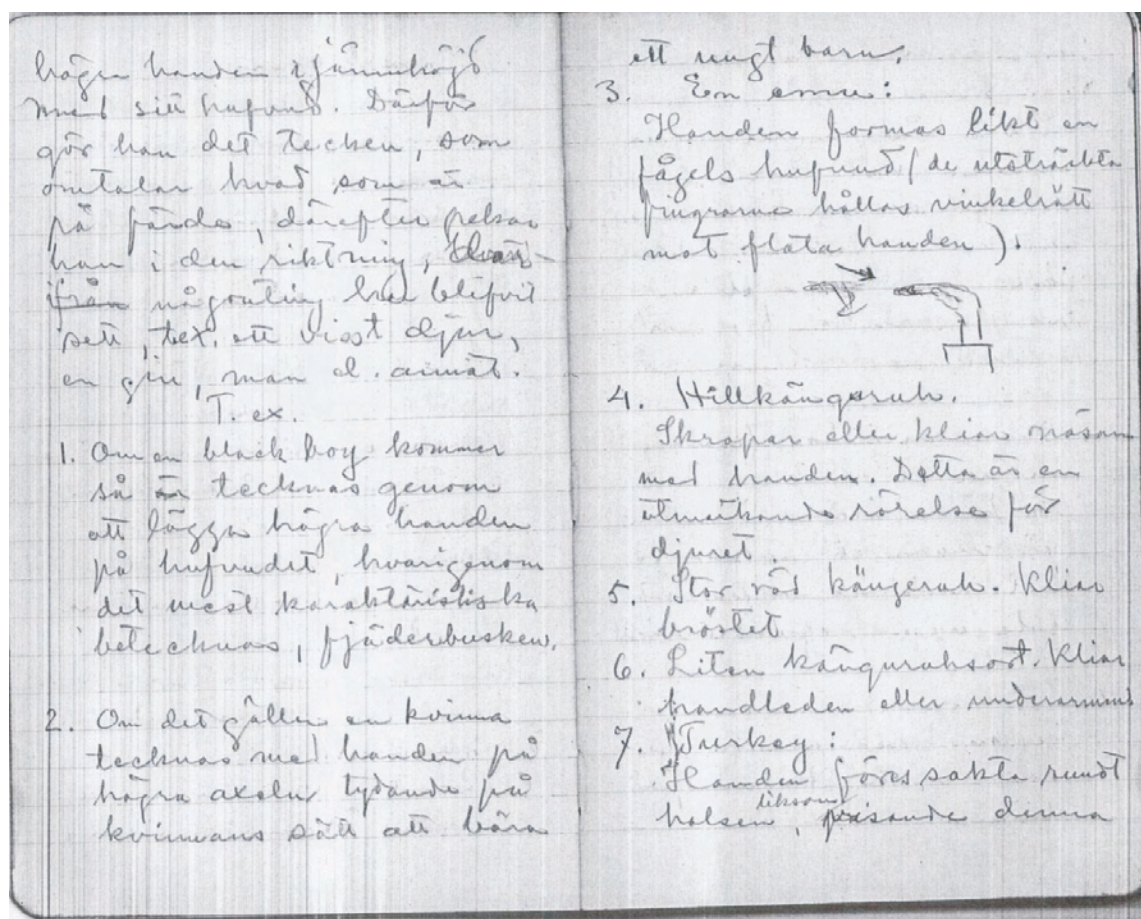 högra handen i jämnhöjd
med sitt hufvud. Därför
gör han det tecken, som
omtalar hvad som är
på färde, därefter pekar
han i den riktning,
någonting har blifvit
sett, t.ex. ett visst djur,
en gin, man el. annat.
T. ex.
1. Om en black boy kommer
så är tecknas genom
att lägga högra handen
på hufvudet, hvarigenom
det mest karaktäristiska
betecknas, fjäderbusken.
2. Om det gäller en kvinna
tecknas med handen på
högra axeln tydande på
kvinnans sätt att bära
ett ungt barn.
3. En emu:
Handen formas likt en
fågels hufvud (de utsträckta
fingrarna hållas vinkelrätt
mot flata handen).
4. Hillkänguruh.
Skrapar eller kliar näsan
med handen. Detta är en
utmärkande rörelse för
djuret.
5. Stor röd känguruh. Kliar
bröstet
6. Liten känguruhsort. Kliar
handleden eller underarmen
7. Turkey:
Handen föres sakta rundt
halsen, liksom visande denna